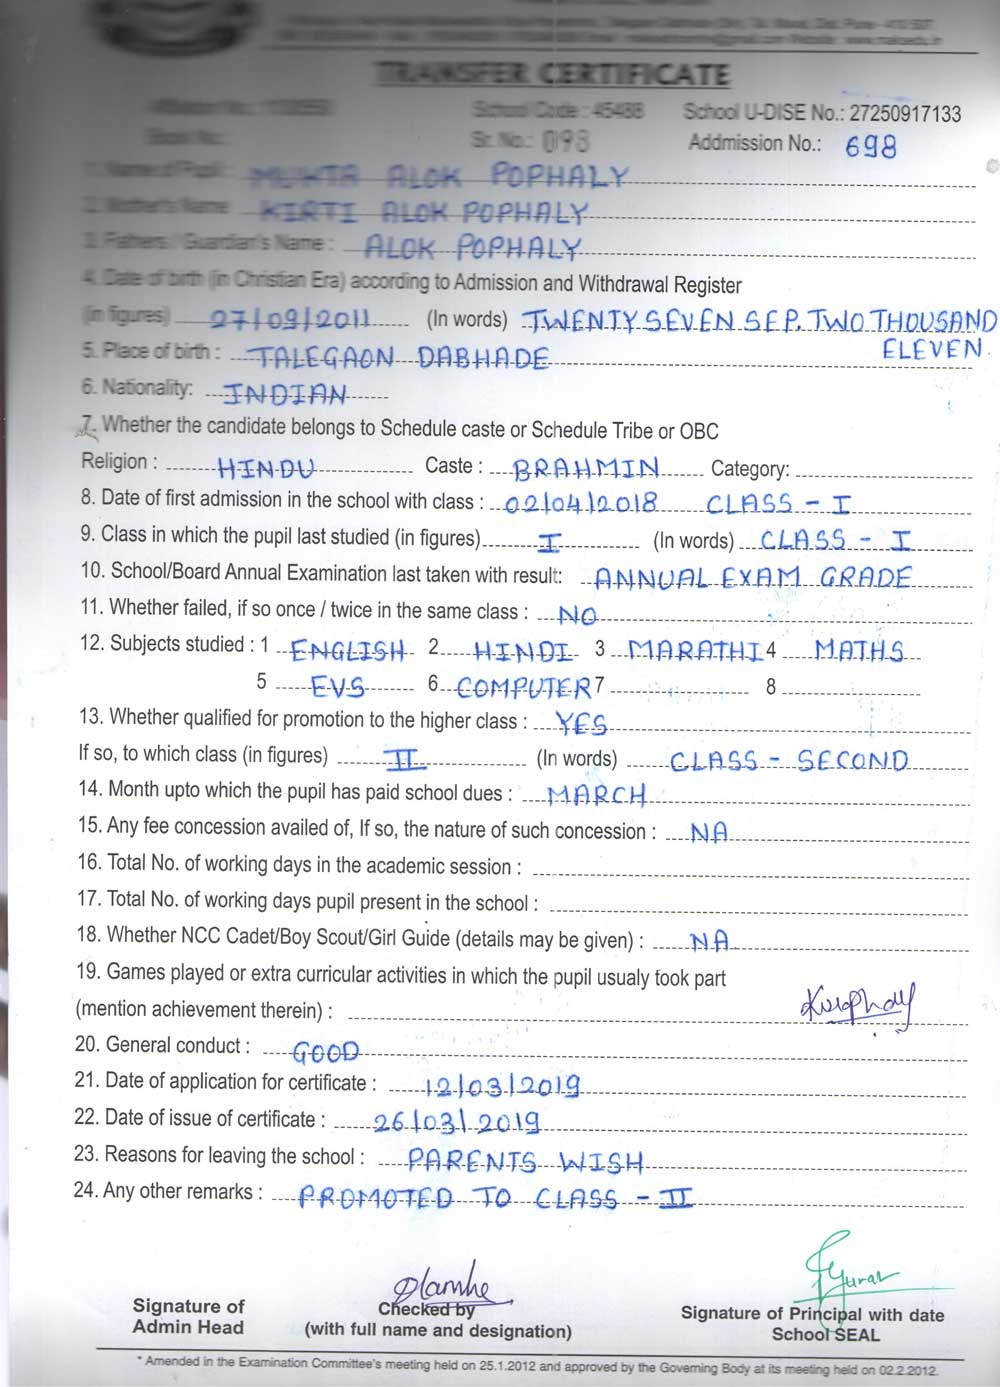 TRANSFER CERTIFICATE
School Code : 45488 School U-DISE No.: 27250917133
Sr. No.: 093 Addmission No.: 698
1. Name of Pupil : MUKTA ALOK POPHALY
2. Mother's Name KIRTI ALOK POPHALY
3. Fathers / Guardian's Name : ALOK POPHALY
4. Date of birth (in Christian Era) according to Admission and Withdrawal Register
(in figures) 27/09/2011 (In words) TWENTY SEVEN SEP. TWO THOUSAND
ELEVEN.
5. Place of birth : TALEGAON DABHADE
6. Nationality: INDIAN
7. Whether the candidate belongs to Schedule caste or Schedule Tribe or OBC
Religion : HINDU Caste : BRAHMIN Category:
8. Date of first admission in the school with class : 02/04/2018 CLASS - I
9. Class in which the pupil last studied (in figures) I (In words) CLASS - I
10. School/Board Annual Examination last taken with result: ANNUAL EXAM GRADE
11. Whether failed, if so once / twice in the same class : NO
12. Subjects studied : 1 ENGLISH 2 HINDI 3 MARATHI 4 MATHS
5 EVS 6 COMPUTER 7 8
13. Whether qualified for promotion to the higher class : YES
If so, to which class (in figures) II (In words) CLASS - SECOND
14. Month upto which the pupil has paid school dues : MARCH
15. Any fee concession availed of, If so, the nature of such concession : NA
16. Total No. of working days in the academic session :
17. Total No. of working days pupil present in the school :
18. Whether NCC Cadet/Boy Scout/Girl Guide (details may be given) : NA
19. Games played or extra curricular activities in which the pupil usualy took part
(mention achievement therein) :
20. General conduct : GOOD
21. Date of application for certificate : 12/03/2019
22. Date of issue of certificate : 26/03/2019
23. Reasons for leaving the school : PARENTS WISH
24. Any other remarks : PROMOTED TO CLASS - II
Signature of Checked by Signature of Principal with date
Admin Head (with full name and designation) School SEAL
* Amended in the Examination Committee's meeting held on 25.1.2012 and approved by the Governing Body at its meeting held on 02.2.2012.